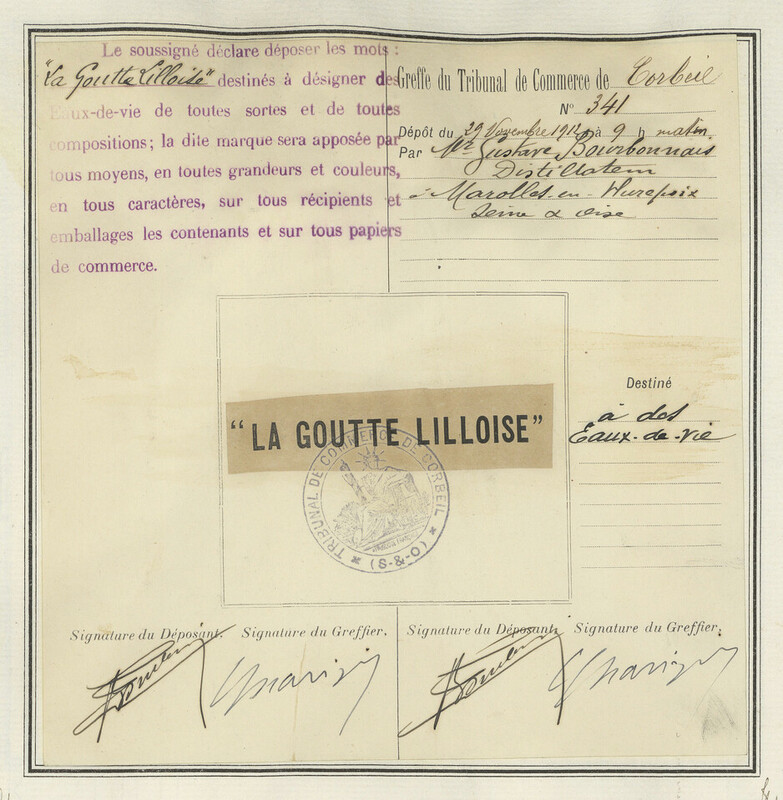 Le soussigné déclare déposer les mots :
"La Goutte Lilloise" destinés à désigner des
Eaux-de-vie de toutes sortes et de toutes
compositions; la dite marque sera apposée par
tous moyens, en toutes grandeurs et couleurs,
en tous caractères, sur tous récipients et
emballages les contenants et sur tous papiers
de commerce.
Greffe du Tribunal de Commerce de Corbeil
N° 341
Dépôt du 29 Novembre 1912 à 9 h matin
Par Mr Gustave Bourbonnais
Distillateur
à Marolles-en-Hurepoix
Seine & Oise
"LA GOUTTE LILLOISE"
TRIBUNAL DE COMMERCE DE CORBEIL
(S-&-O)
Destiné
à des
Eaux-de-vie
Signature du Déposant. Signature du Greffier.
Signature du Déposant. Signature du Greffier.